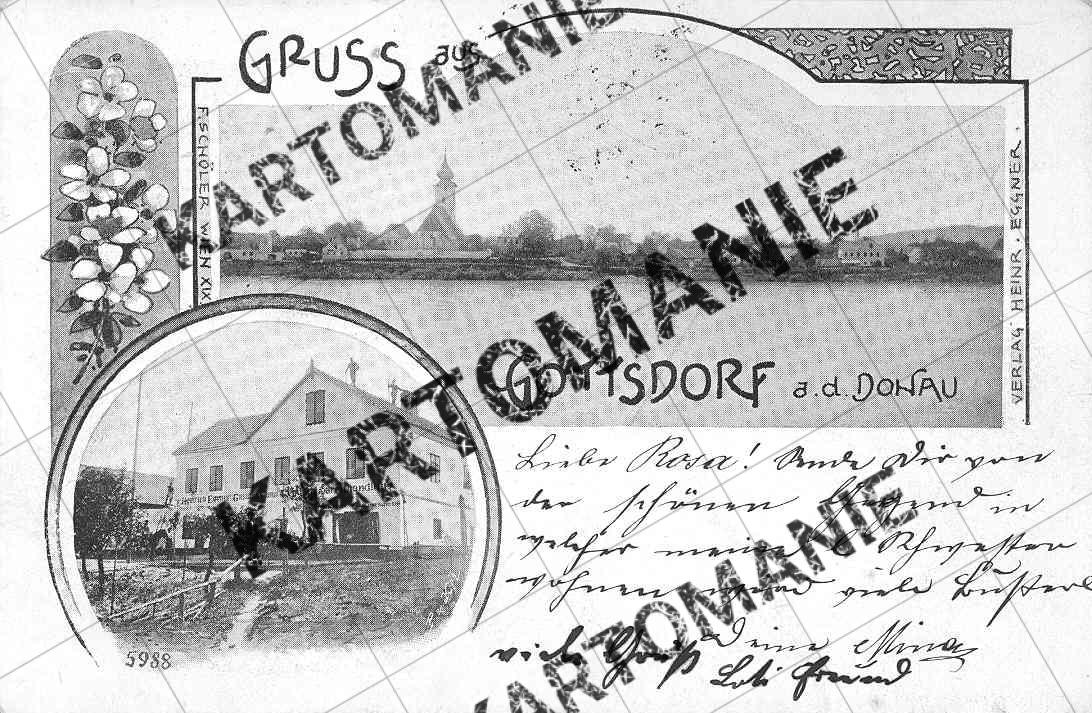 GRUSS aus
F. SCHÖLER WIEN XIX
VERLAG HEINR. EGGNER.
GOTTSDORF a.d. DONAU
5988
Liebe Rosa! Sende Dir von
der schönen Gegend in
welcher meine Schwester
wohnen viele Busserl
Deine Mina
viele Grüß
KARTOMANIE
KARTOMANIE
KARTOMANIE